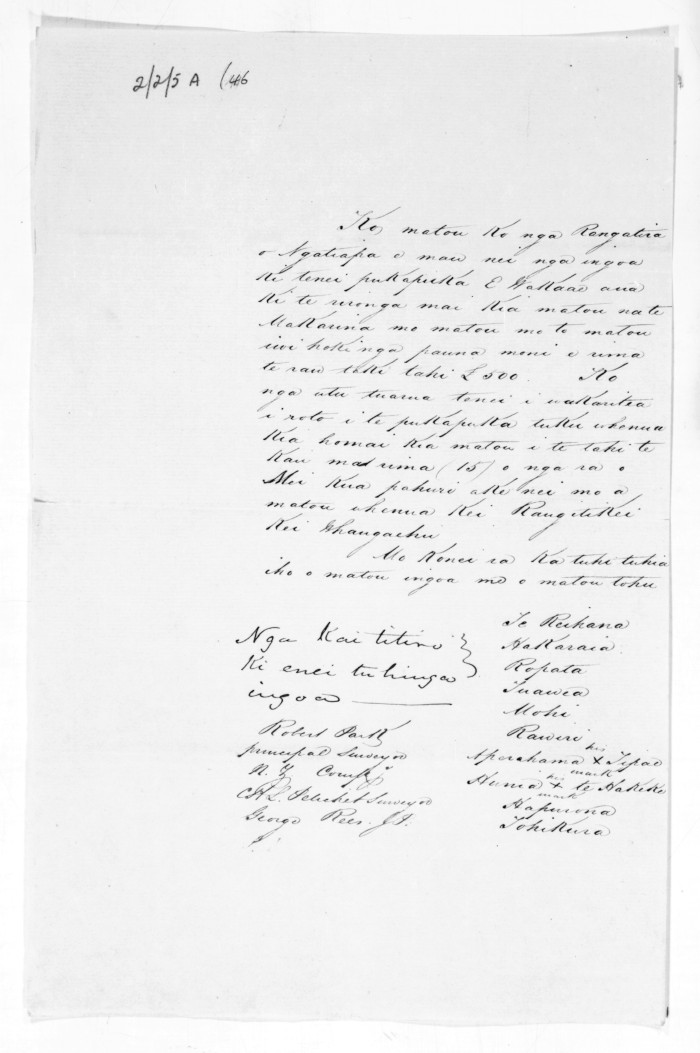 2/2/5 A (46
Ko, matou ko nga Rangatira
o Ngatiapa e mau nei nga ingoa
ki tenei pukapuka E Wakaae ana
ki te rironga mai kia matou na te
Makarina mo matou mo to matou
iwi hoki nga pauna moni e rima
te rau takitahi £500. Ko
nga utu tuarua tenei i wakaritea
i roto i te pukapuka tuku whenua
kia homai kia matou i te tahi te
kau ma rima (15) o nga ra o
Mei kua pahuri ake nei mo a
matou whenua kei Rangitikei
kei Whangaehu
Mo konei ra ka tuhi tuhia
iho o matou ingoa me o matou tohu
Te Reihana
Hakaraia.
Ropata
Tuawea
Mohi
Rawiri
Aperahama his x mark Tipae
Hunia his x mark te Hakeke
Hapurona
Tohikura
Nga Kai titiro
ki enei tuhinga
ingoa
Robert Park
principal Surveyor
N. Z. Compy
Pelichet Surveyor
George Rees. J.P.